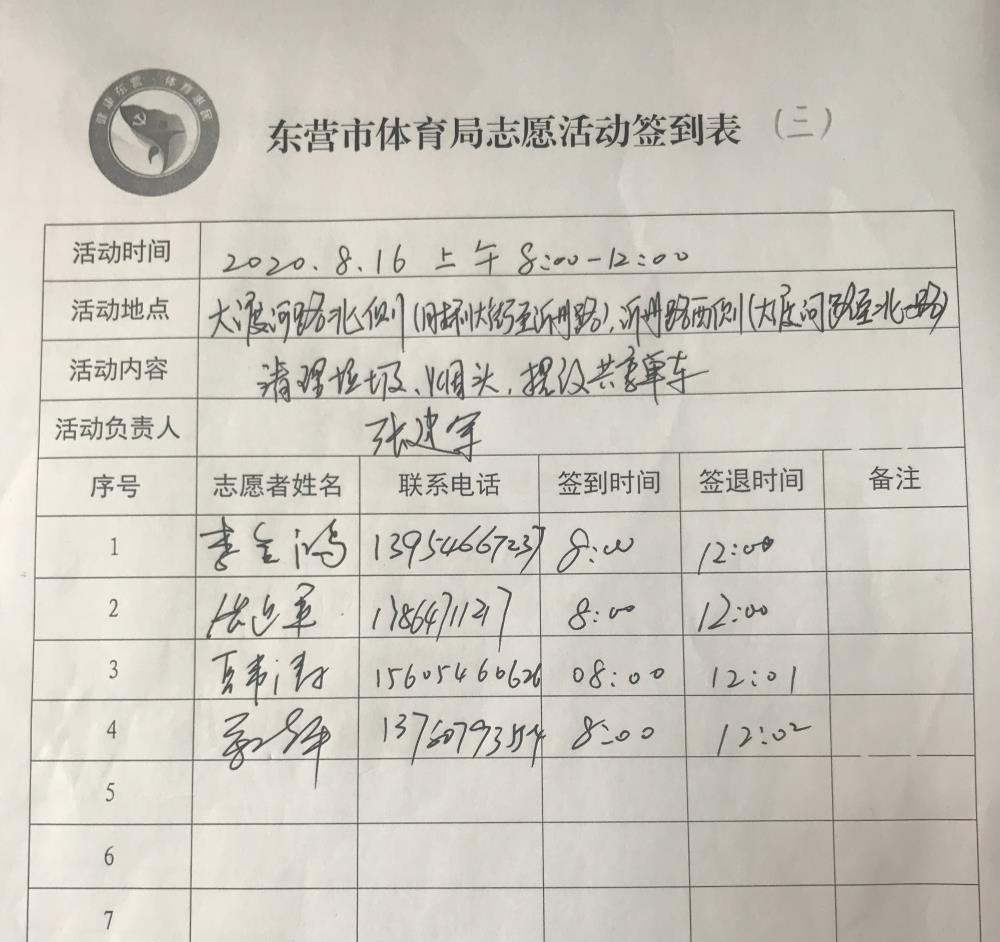 健康东营·体育惠民
东营市体育局志愿活动签到表 (三)
活动时间 2020.8.16 上午 8:00-12:00
活动地点 大渡河路北侧(胜利大街至沂州路),沂州路西侧(大渡河路至北一路)
活动内容 清理垃圾、烟头,摆放共享单车
活动负责人 张建军
序号 志愿者姓名 联系电话 签到时间 签退时间 备注
1 李金鸿 13954667237 8:00 12:00
2 13864711217 8:00 12:00
3 15605460626 08:00 12:01
4 8:00 12:02
5
6
7